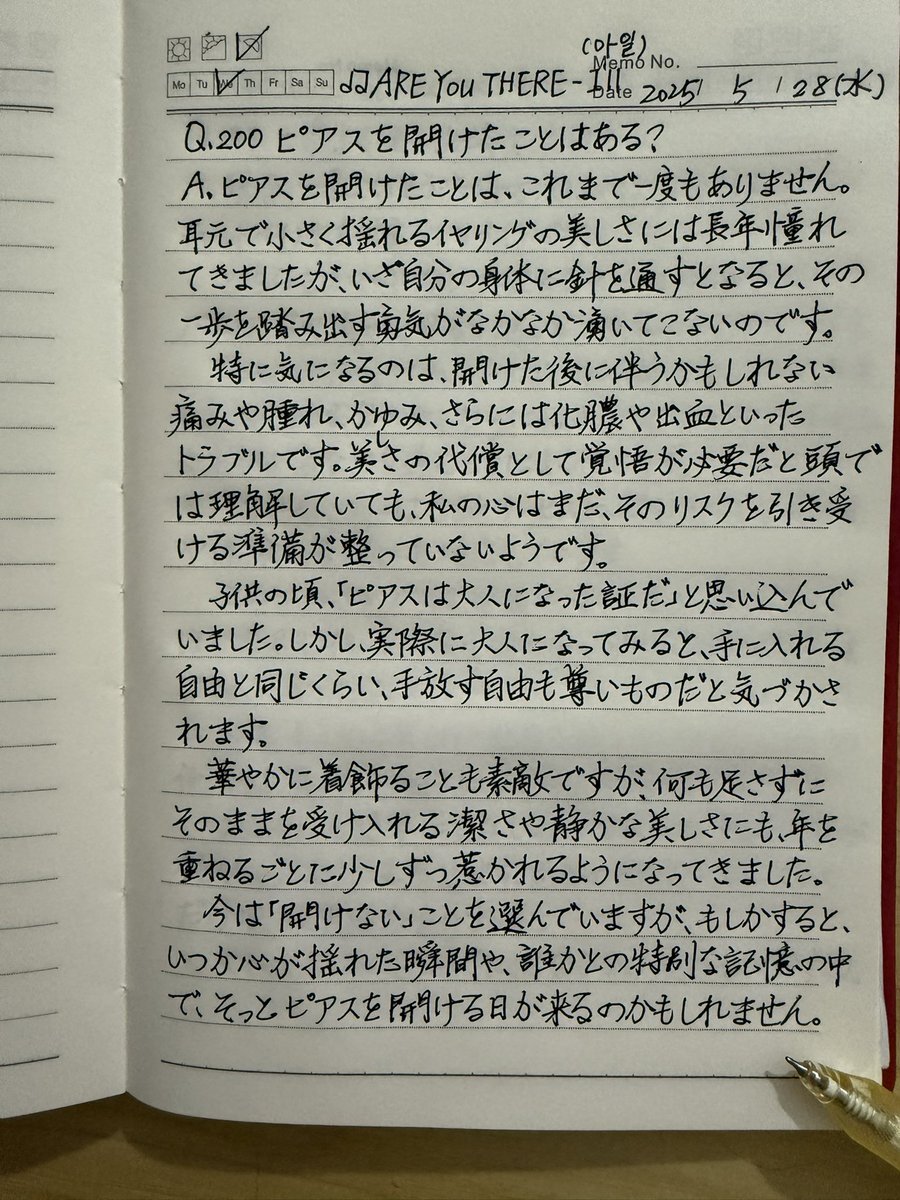 (아일)
Memo No.
Mo Tu We Th Fr Sa Su ♫ARE YOU THERE - I'll Date 2025 / 5 / 28(水)
Q.200 ピアスを開けたことはある？
A.ピアスを開けたことは、これまで一度もありません。
耳元で小さく揺れるイヤリングの美しさには長年憧れ
てきましたが、いざ自分の身体に針を通すとなると、その
一歩を踏み出す勇気がなかなか湧いてこないのです。
特に気になるのは、開けた後に伴うかもしれない
痛みや腫れ、かゆみ、さらには化膿や出血といった
トラブルです。美しさの代償として覚悟が必要だと頭で
は理解していても、私の心はまだ、そのリスクを引き受
ける準備が整っていないようです。
子供の頃、「ピアスは大人になった証だ」と思い込んで
いました。しかし、実際に大人になってみると、手に入れる
自由と同じくらい、手放す自由も尊いものだと気づかさ
れます。
華やかに着飾ることも素敵ですが、何も足さずに
そのままを受け入れる潔さや静かな美しさにも、年を
重ねるごとに少しずつ惹かれるようになってきました。
今は「開けない」ことを選んでいますが、もしかすると、
いつか心が揺れた瞬間や、誰かとの特別な記憶の中
で、そっとピアスを開ける日が来るのかもしれません。